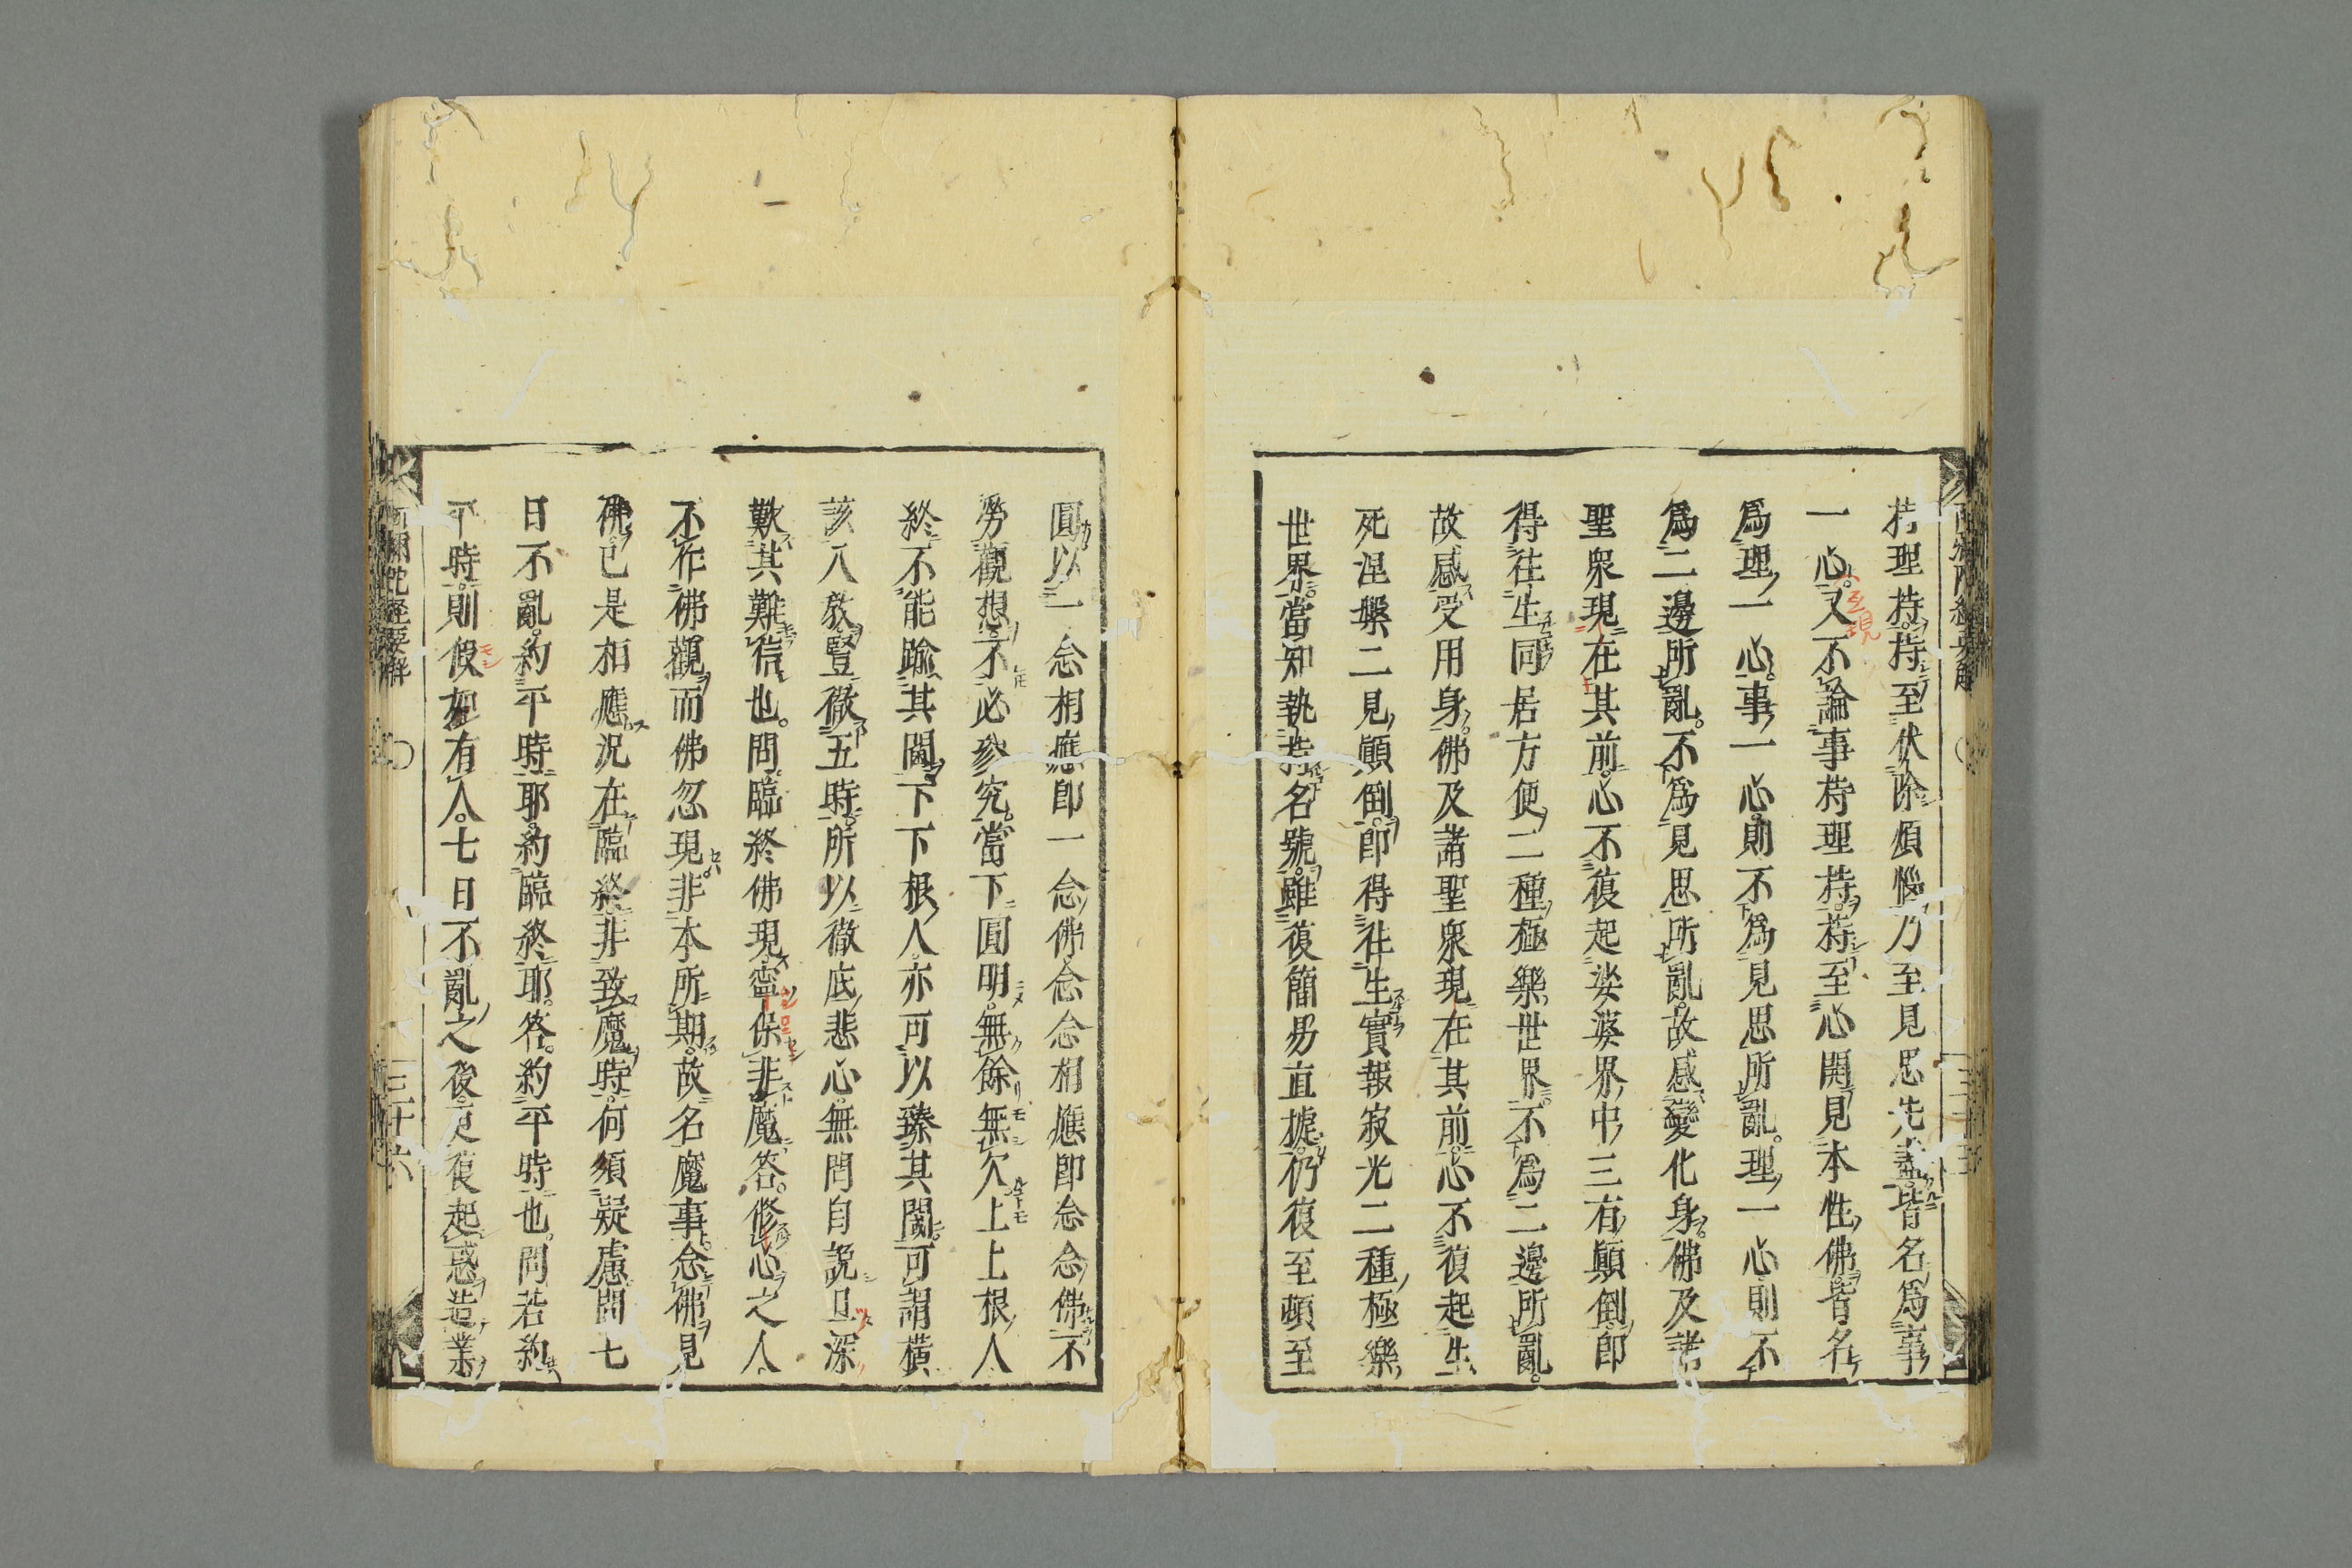 持理持持至伏除煩惱乃至見思先盡皆名爲事
一心又不論事持理持持至心開見本性佛皆名
爲理一心事一心則不爲見思所亂理一心則不
爲二邊所亂不爲見思所亂故感變化身佛及諸
聖衆現在其前心不復起娑婆界中三有顚倒卽
得往生同居方便二種極樂世界不爲二邊所亂
故感受用身佛及諸聖衆現在其前心不復起生
死涅槃二見顚倒卽得往生實報寂光二種極樂
世界當知執持名號雖復簡易直捷仍復至頓至
圓以一念相應卽一念佛念念相應卽念念佛不
勞觀想不必參究當下圓明無餘無欠上上根人
終不能踰其閫下下根人亦可以臻其閾可謂橫
該八敎豎徹五時所以徹底悲心無問自說且深
歎其難信也問臨終佛現寧保非魔答修心之人
不作佛觀而佛忽現非本所期故名魔事念佛見
佛已是相應況在臨終非致魔時何須疑慮問七
日不亂約平時耶約臨終耶答約平時也問若約
平時則假如有人七日不亂之後更復起惑造業
阿彌陀經要解
三十六